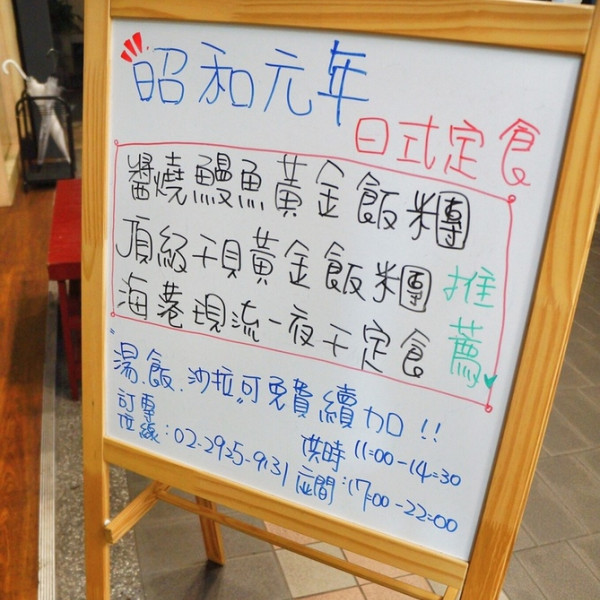 昭和元年
日式定食
醬燒鰻魚黃金飯糰
頂級干貝黃金飯糰
海巷現流一夜干定食
推薦
湯.飯.沙拉,可免費續加!!
訂位專線:02-2925-9131
供座時間:11:00-14:30
17:00-22:00